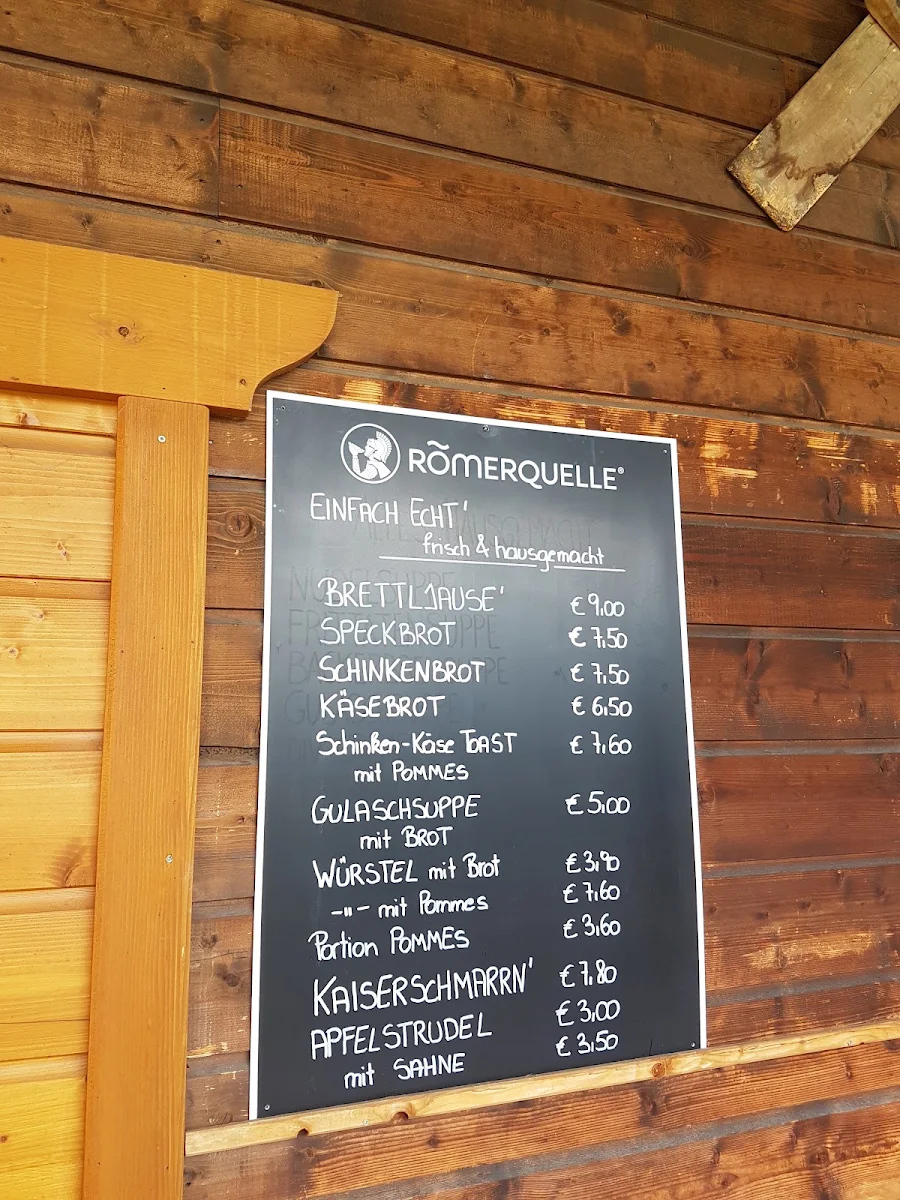 RÖMERQUELLE®
EINFACH ECHT'
frisch & hausgemacht
BRETTLJAUSE' € 9,00
SPECKBROT € 7,50
SCHINKENBROT € 7,50
KÄSEBROT € 6,50
Schinken-Käse TOAST € 7,60
mit POMMES
GULASCHSUPPE € 5,00
mit BROT
WÜRSTEL mit Brot € 3,90
-"- mit Pommes € 7,60
Portion POMMES € 3,60
KAISERSCHMARRN' € 7,80
APFELSTRUDEL € 3,00
mit SAHNE € 3,50